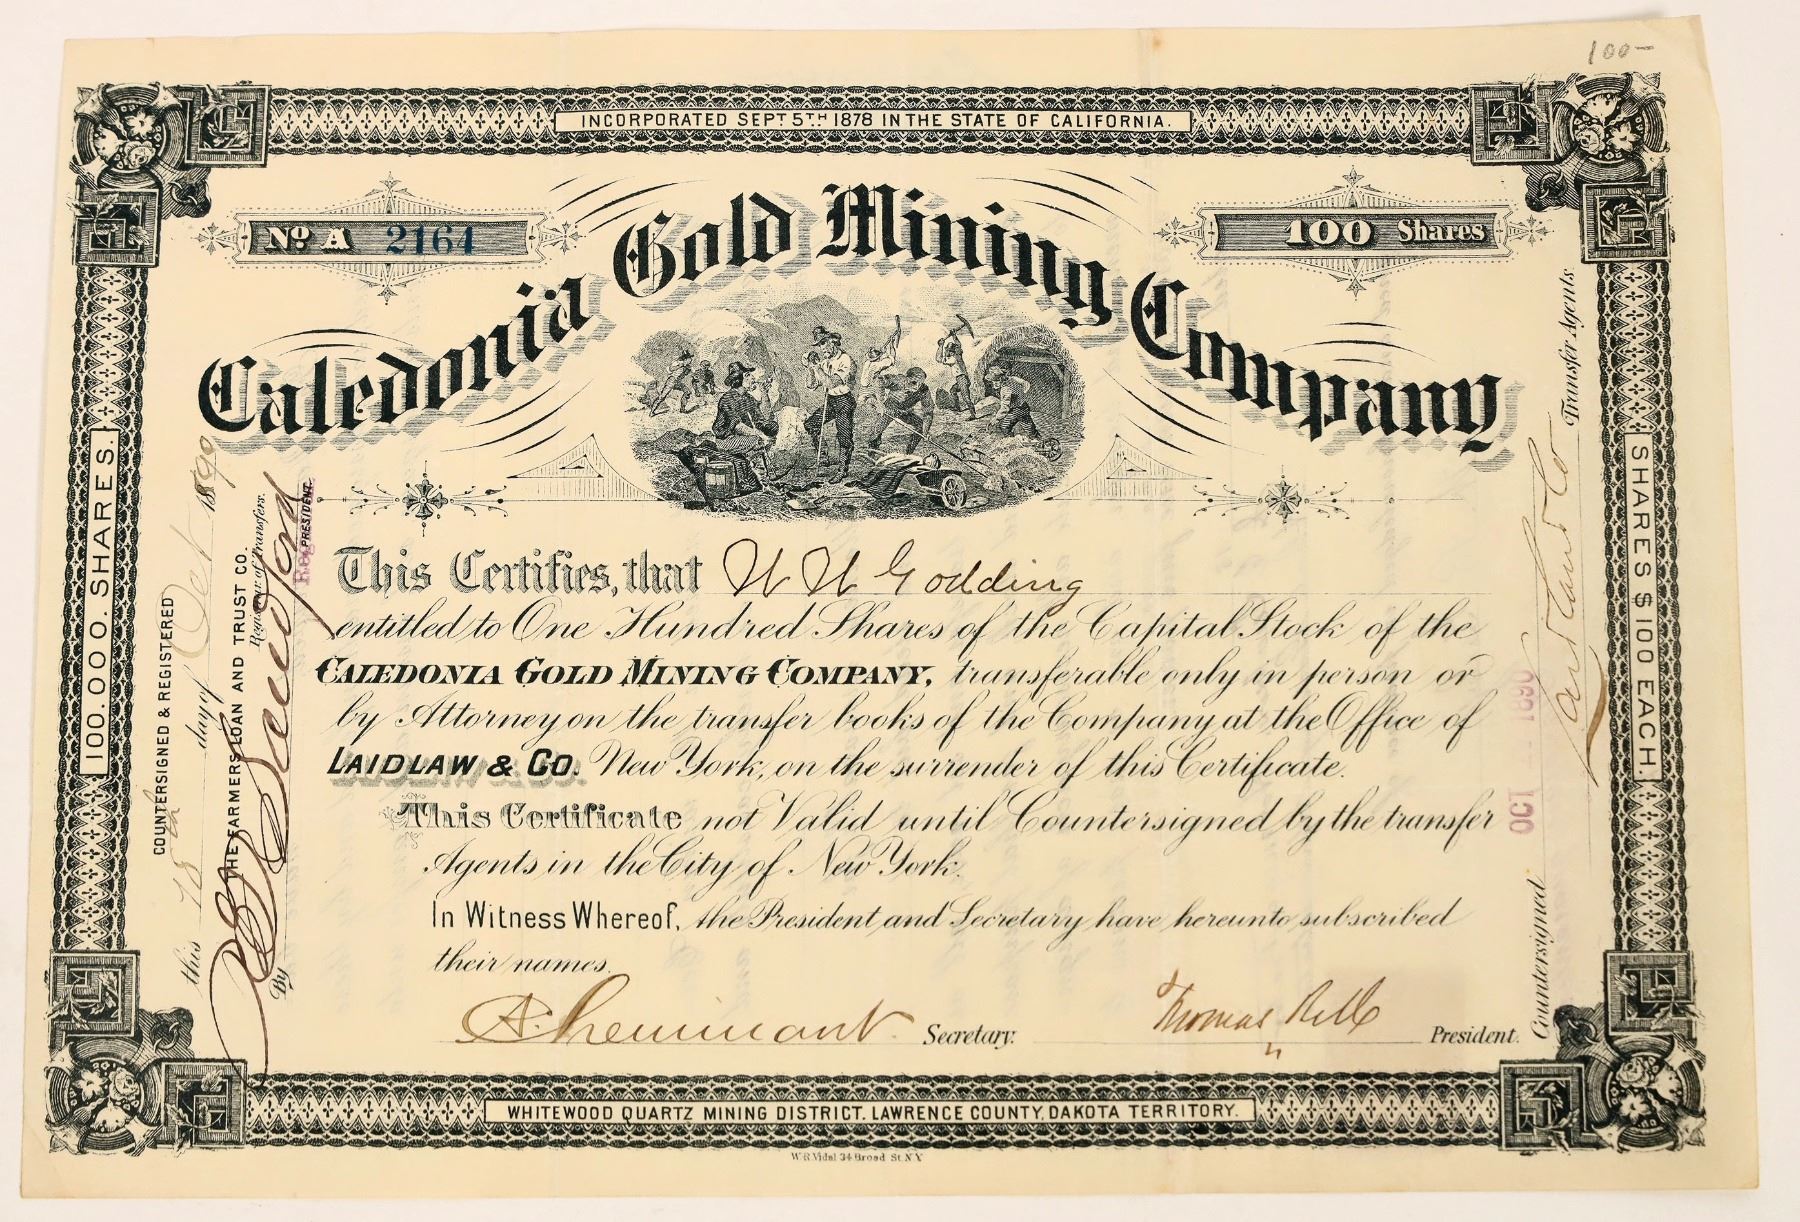 100-
INCORPORATED SEPT 5TH 1878 IN THE STATE OF CALIFORNIA.
No A 2164
100 Shares
Caledonia Gold Mining Company
This Certifies, that W W Godding
entitled to One Hundred Shares of the Capital Stock of the
CALEDONIA GOLD MINING COMPANY, transferable only in person or
by Attorney on the transfer books of the Company at the Office of
LAIDLAW & CO. New York, on the surrender of this Certificate.
This Certificate not Valid until Countersigned by the transfer
Agents in the City of New York.
In Witness Whereof, the President and Secretary have hereunto subscribed
their names.
Secretary.
Thomas Bell President.
100.000. SHARES.
COUNTERSIGNED & REGISTERED
this day of Oct 1890
THE FARMERS LOAN AND TRUST CO.
Registrar of Transfers.
By
PRESIDENT.
SHARES $100 EACH.
Countersigned Laidlaw & Co Transfer Agents
OCT 1890
WHITEWOOD QUARTZ MINING DISTRICT. LAWRENCE COUNTY, DAKOTA TERRITORY.
W R Vidal 34 Broad St. N.Y